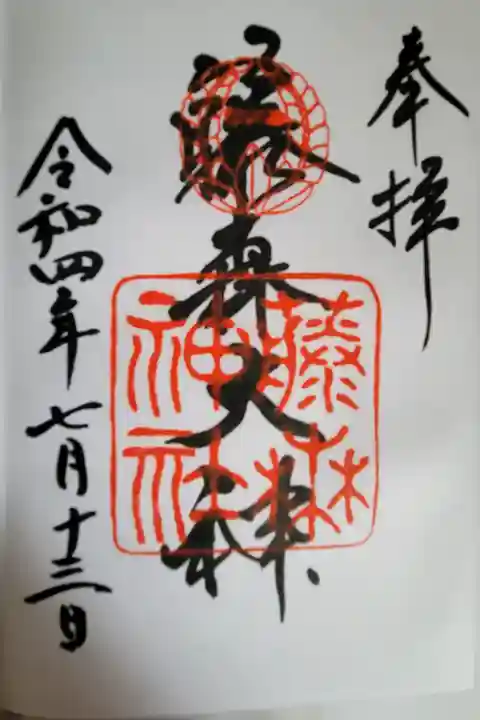 奉拝
藤森大神
藤森神社
令和四年七月十三日